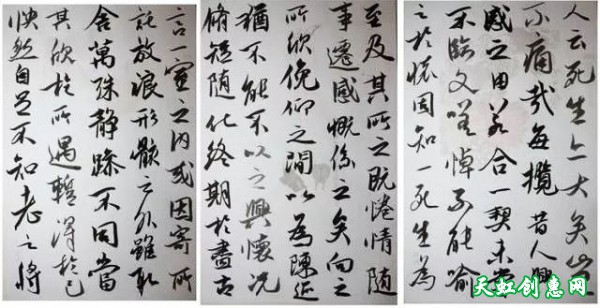 言一室之内或因寄所
託放浪形骸之外雖取
舍萬殊静躁不同當
其欣於所遇暫得於己
快然自足不知老之將
至及其所之既惓情随
事遷感慨係之矣向之
所欣俛仰之間以為陳迹
猶不能不以之興懷况
脩短随化終期於盡古
人云死生亦大矣豈
不痛哉每攬昔人興
感之由若合一契未嘗
不臨文嗟悼不能喻
之於懷固知一死生為
天虹创惠网